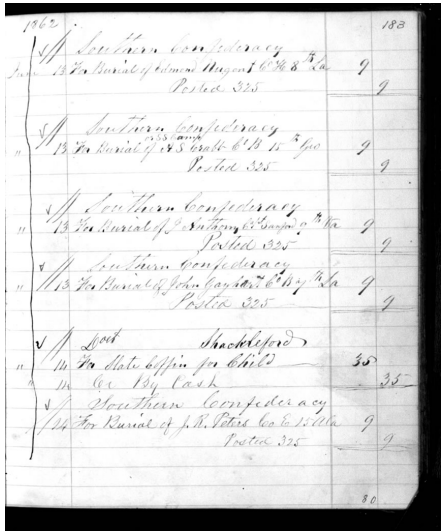 1862 183
Southern Confederacy
June 13 For Burial of Edmond Nugent Co H 8th La 9
Posted 325 9
Southern Confederacy
" 13 For Burial of A S Crabb Co B 15th Geo 9
Posted 325 9
Southern Confederacy
" 13 For Burial of J Anthony 9th Va 9
Posted 325 9
Southern Confederacy
" 13 For Burial of John Gayhart Co B 7th La 9
Posted 325 9
Doct Shackleford
" 14 For State Coffin for Child 35
" 14 Cr By Cash 35
Southern Confederacy
14 For Burial of J. R. Peters Co E 15 Ala 9
Posted 325 9
80